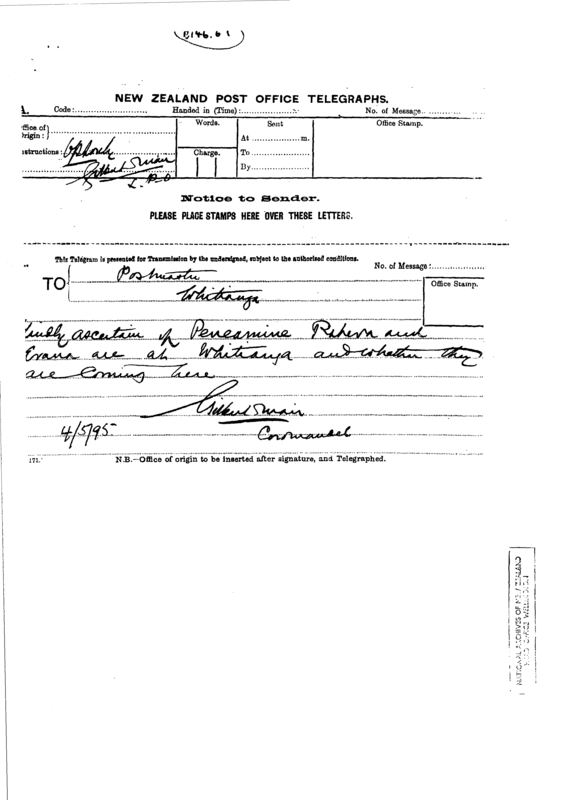 B146.61
NEW ZEALAND POST OFFICE TELEGRAPHS.
Code: Handed in (Time): No. of Message
Office of
Origin:
Words. Sent Office Stamp.
At m.
Instructions:
Charge. To
By
Gilbert Mair
Notice to Sender.
PLEASE PLACE STAMPS HERE OVER THESE LETTERS.
This Telegram is presented for Transmission by the undersigned, subject to the authorised conditions.
No. of Message:
TO Postmaster
Whitianga
Office Stamp.
Kindly ascertain if Peneamine and
are at Whitianga and whether they
are coming here
Gilbert Mair
4/5/95 Coromandel
171. N.B.—Office of origin to be inserted after signature, and Telegraphed.
NATIONAL ARCHIVES OF NEW ZEALAND
HEAD OFFICE WELLINGTON